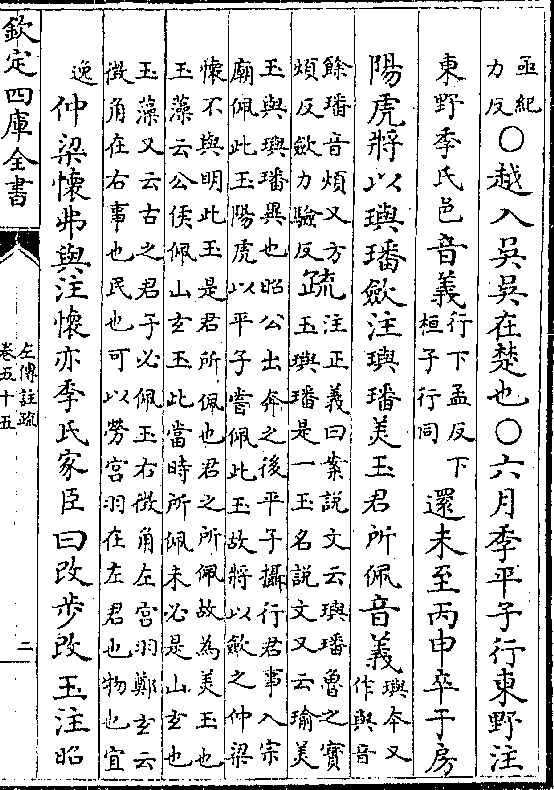 亟紀
力反
○越入吳吳在楚也○六月季平子行東野注
東野季氏邑音義
行下孟反下
桓子行同
還未至丙申卒于房
陽虎將以璵璠斂注璵璠美玉君所佩音義
璵本又
作與音
餘璠音煩又方
煩反斂力驗反
疏
注正義曰案説文云璵璠魯之寳
玉璵璠是一玉名説文又云瑜美
玉與璵璠異也昭公出奔之後平子攝行君事入宗
廟佩此玉陽虎以平子嘗佩此玉故將以斂之仲梁
懷不與明此玉是君所佩也君之所佩故為美玉也
玉藻云公侯佩山玄玉此當時所佩未必是山玄也
玉藻又云古之君子必佩玉右徴角左宫羽鄭玄云
徴角在右事也民也可以勞宫羽在左君也物也宜
逸
仲梁懷弗與注懷亦季氏家臣曰改步改玉注昭
欽定四庫全書
左傳註疏
卷五十五
二